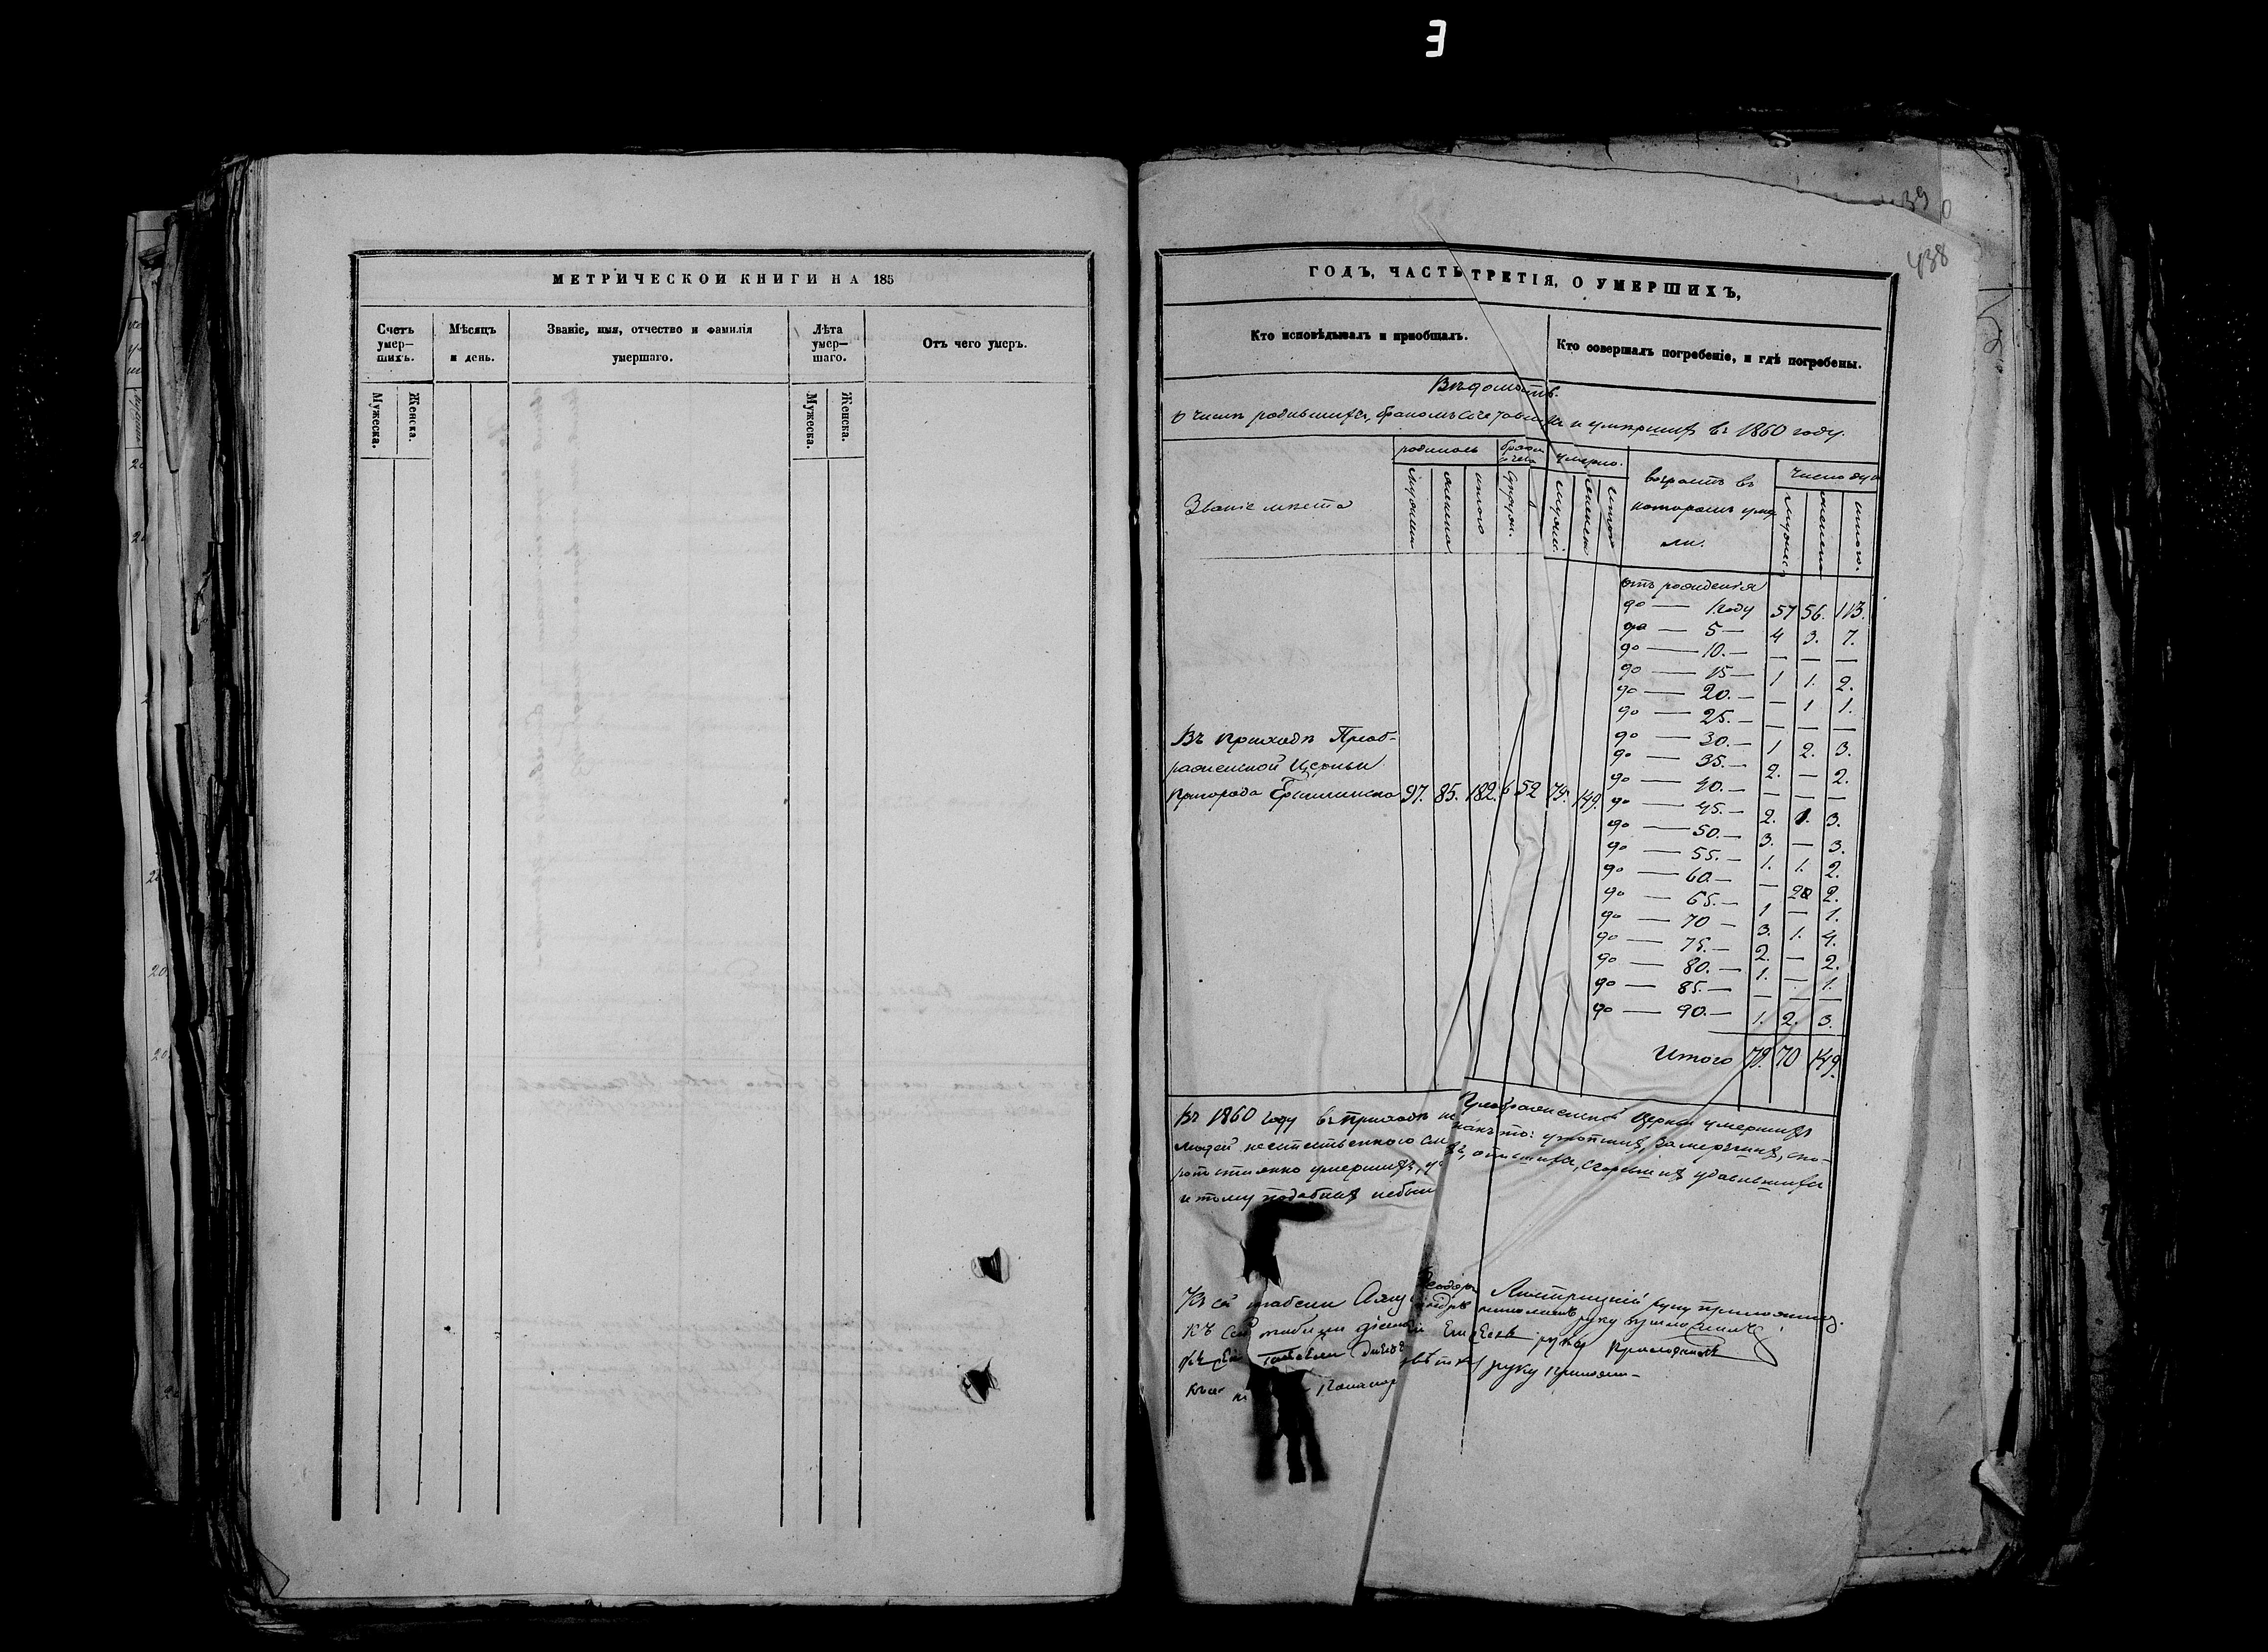 Э
МЕТРИЧЕСКОЙ КНИГИ НА 185
Счетъ умер-шихъ.
Мѣсяцъ и день.
Званіе, имя, отчество и фамилія умершаго.
Лѣта умер-шаго.
Отъ чего умеръ.
Мужеска.
Женска.
Мужеска.
Женска.
39
438
ГОДЪ, ЧАСТЬ ТРЕТІЯ, О УМЕРШИХЪ,
Кто исповѣдывалъ и пріобщалъ.
Кто совершалъ погребеніе, и гдѣ погребены.
Вѣдомость
о числѣ родившихся, бракомъ сочетавшихся и умершихъ въ 1860 году.
Званіе мѣста
родилось
умерло.
возрастъ въ
которомъ умер
ли.
Число душ
отъ рожденія
до — 1 году 57 56. 113.
до — 5 — 4 3. 7.
до — 10. — — — —
до — 15 — 1 1. 2.
до — 20. — — 1 1.
до — 25. — — — —
до — 30. — 1 2. 3.
до — 35. — 2. — 2.
до — 40. — — — —
до — 45. — 2. 1. 3.
до — 50. — 3. — 3.
до — 55. — 1. 1. 2.
до — 60. — — 2 2.
до — 65. — 1 — 1.
до — 70 — 3. 1. 4.
до — 75. — 2. — 2.
до — 80. — 1. — 1.
до — 85. — — — —
до — 90. — 1. 2. 3.
Итого 79. 70 149.
Въ приходѣ Преоб-
раженской Церкви
пригорода 97. 85. 182. 52 79. 149.
Въ 1860 году въ приходѣ Преображенской Церкви умершихъ
людей неестественною какъ то: утопшихъ, замерзшихъ, ско-
ропостижно умершихъ, опившихся, сгоревшихъ удавившихся
и тому подобныхъ небыло
Къ сей табели Листрицкій руку приложилъ.
Къ сей табели руку приложилъ
табели руку приложилъ
Понамарь руку приложи-